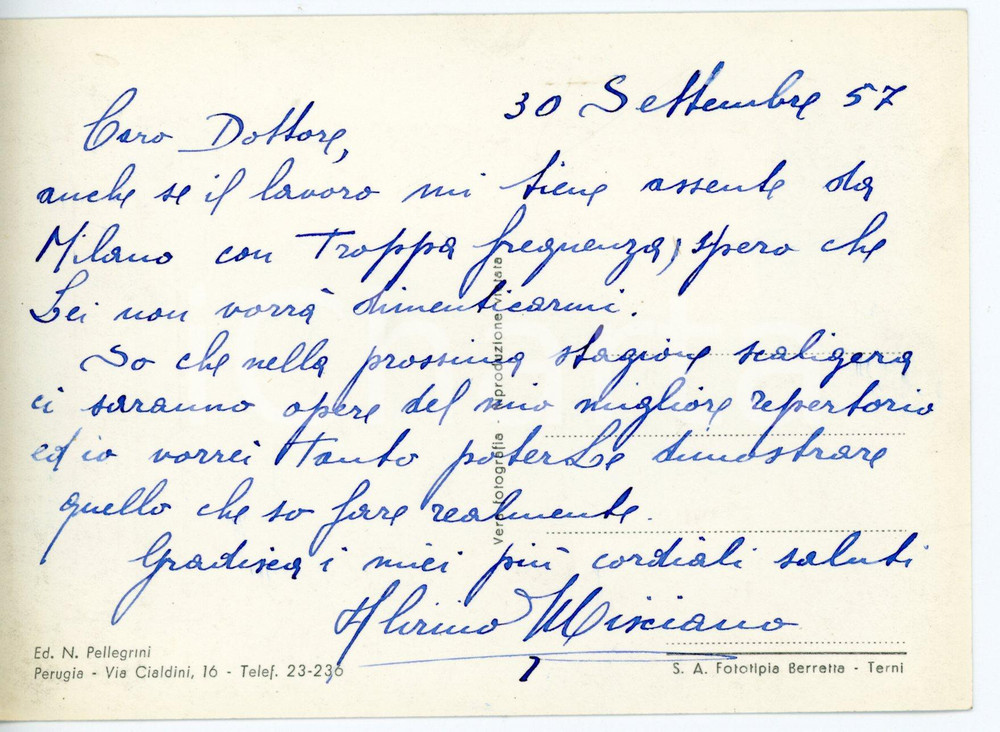 30 Settembre 57
Caro Dottore,
anche se il lavoro mi tiene assente da
Milano con Troppa frequenza, spero che
Lei non vorrà dimenticarmi.
So che nella prossima stagione scaligera
ci saranno opere del mio migliore repertorio
ed io vorrei Tanto poterLe dimostrare
quello che so fare realmente.
Gradisca i miei più cordiali saluti
Alvinio Misciano
Vera fotografia - riproduzione vietata
Ed. N. Pellegrini
Perugia - Via Cialdini, 16 - Telef. 23-236
S. A. Fototipia Berretta - Terni